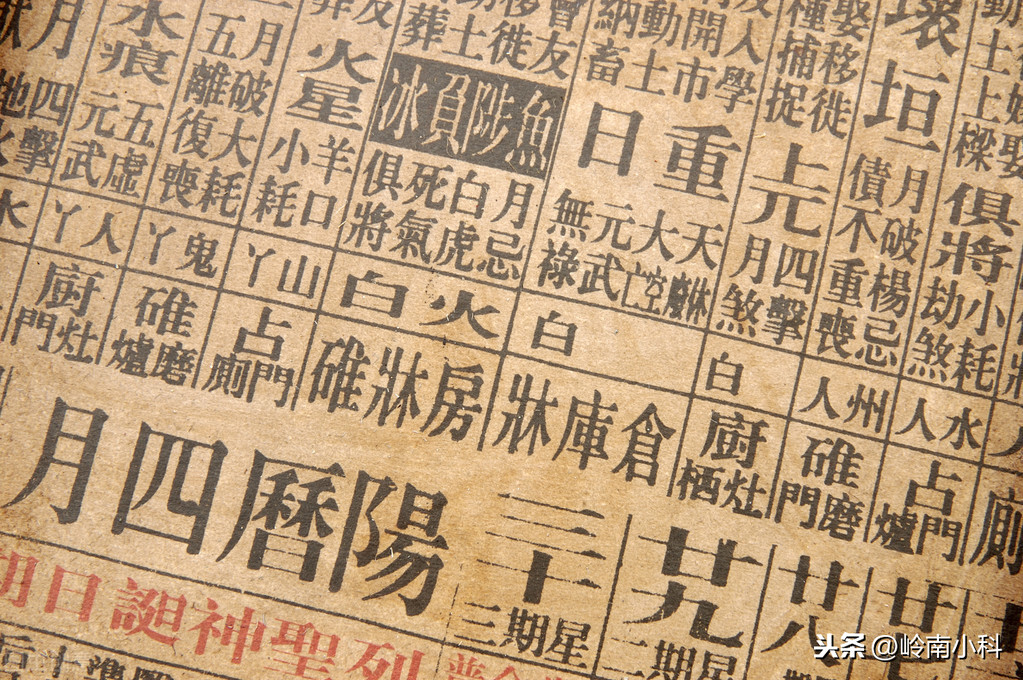 土娶
上樑
俱將
小耗
劫煞
水人
占門爐
壞垣
月破楊忌
債不重喪
州人
碓磨門
娶移徙
種捕捉
上元
四擊
月煞
白
廚灶栖
廿八
人學
動開市
納土畜
重日
天休廢
大空亡
元武
無祿
白
倉庫牀
廿九
星期二
會友
移徙
土
葬
魚陟負冰
月忌
白虎
死氣
俱將
火白
房牀碓
三十
星期三
火星
羊口
小耗
山丫
占門廁
二月破大耗
五離復喪
鬼丫
碓磨爐
水痕
五虛
元武
人丫
廚灶門
月
四擊
地火
水
陽曆四月
列聖神誕日期
头条 @岭南小科